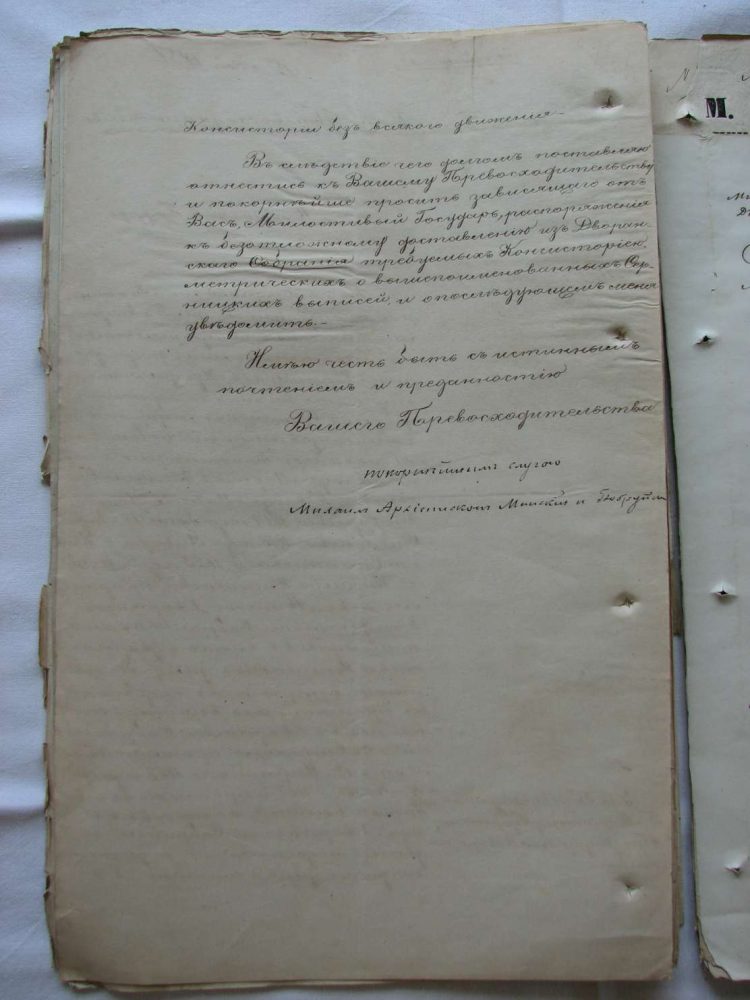 Консисторіи безъ всякаго движенія.
Въ слѣдствіе чего долгомъ поставляю
отнестись къ Вашему Превосходительству
и покорнѣйше просить зависящаго отъ
Васъ, Милостивый Государь, распоряженія
къ безотложному доставленію изъ Дворян-
скаго Собранія требуемыхъ Консисторіею
метрическихъ о вышепоименованныхъ
выписей, и о послѣдующемъ меня
увѣдомить.
Имѣю честь быть съ истиннымъ
почтеніемъ и преданностію
Вашего Превосходительства
покорнѣйшимъ слугою
Михаил Архіепископ Минскій и Бобруйскій
М.